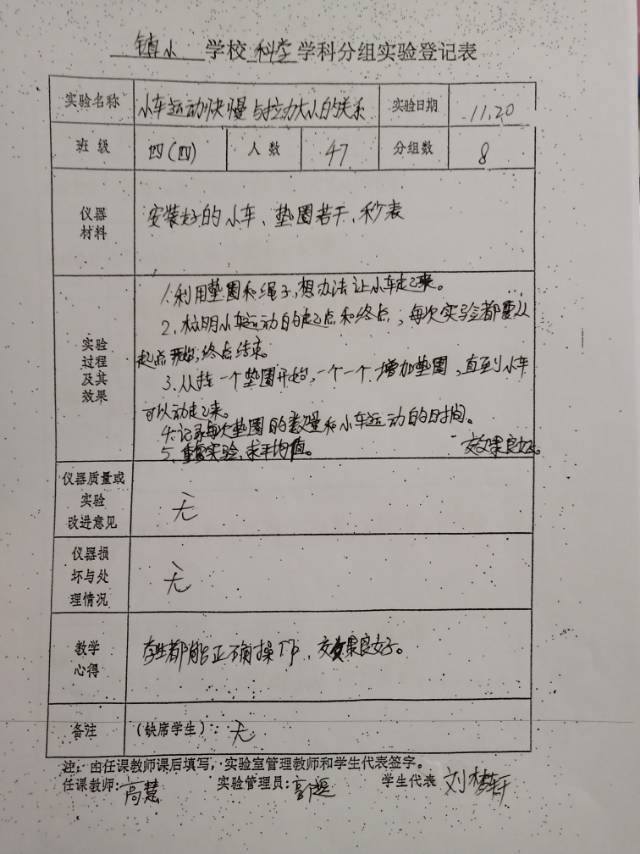 镇小 学校 科学 学科分组实验登记表
实验名称 小车运动快慢与拉动大小的关系 实验日期 11.20
班级 四(四) 人数 47 分组数 8
仪器
材料 安装好的小车、垫圈若干、秒表
实验
过程
及其
效果
1.利用垫圈和绳子,想办法让小车走起来。
2.标明小车运动的起点和终点;每次实验都要从
起点开始,终点结束。
3.从挂一个垫圈开始,一个一个增加垫圈,直至小车
可以动起来。
4.记录每次垫圈的数量和小车运动的时间。
5.重复实验,求平均值。 效果良好。
仪器质量或
实验
改进意见 无
仪器损
坏与处
理情况 无
教学
心得 学生都能正确操作,效果良好。
备注 (缺席学生):无
注:由任课教师课后填写,实验室管理教师和学生代表签字。
任课教师:高慧 实验管理员: 学生代表 刘梦轩